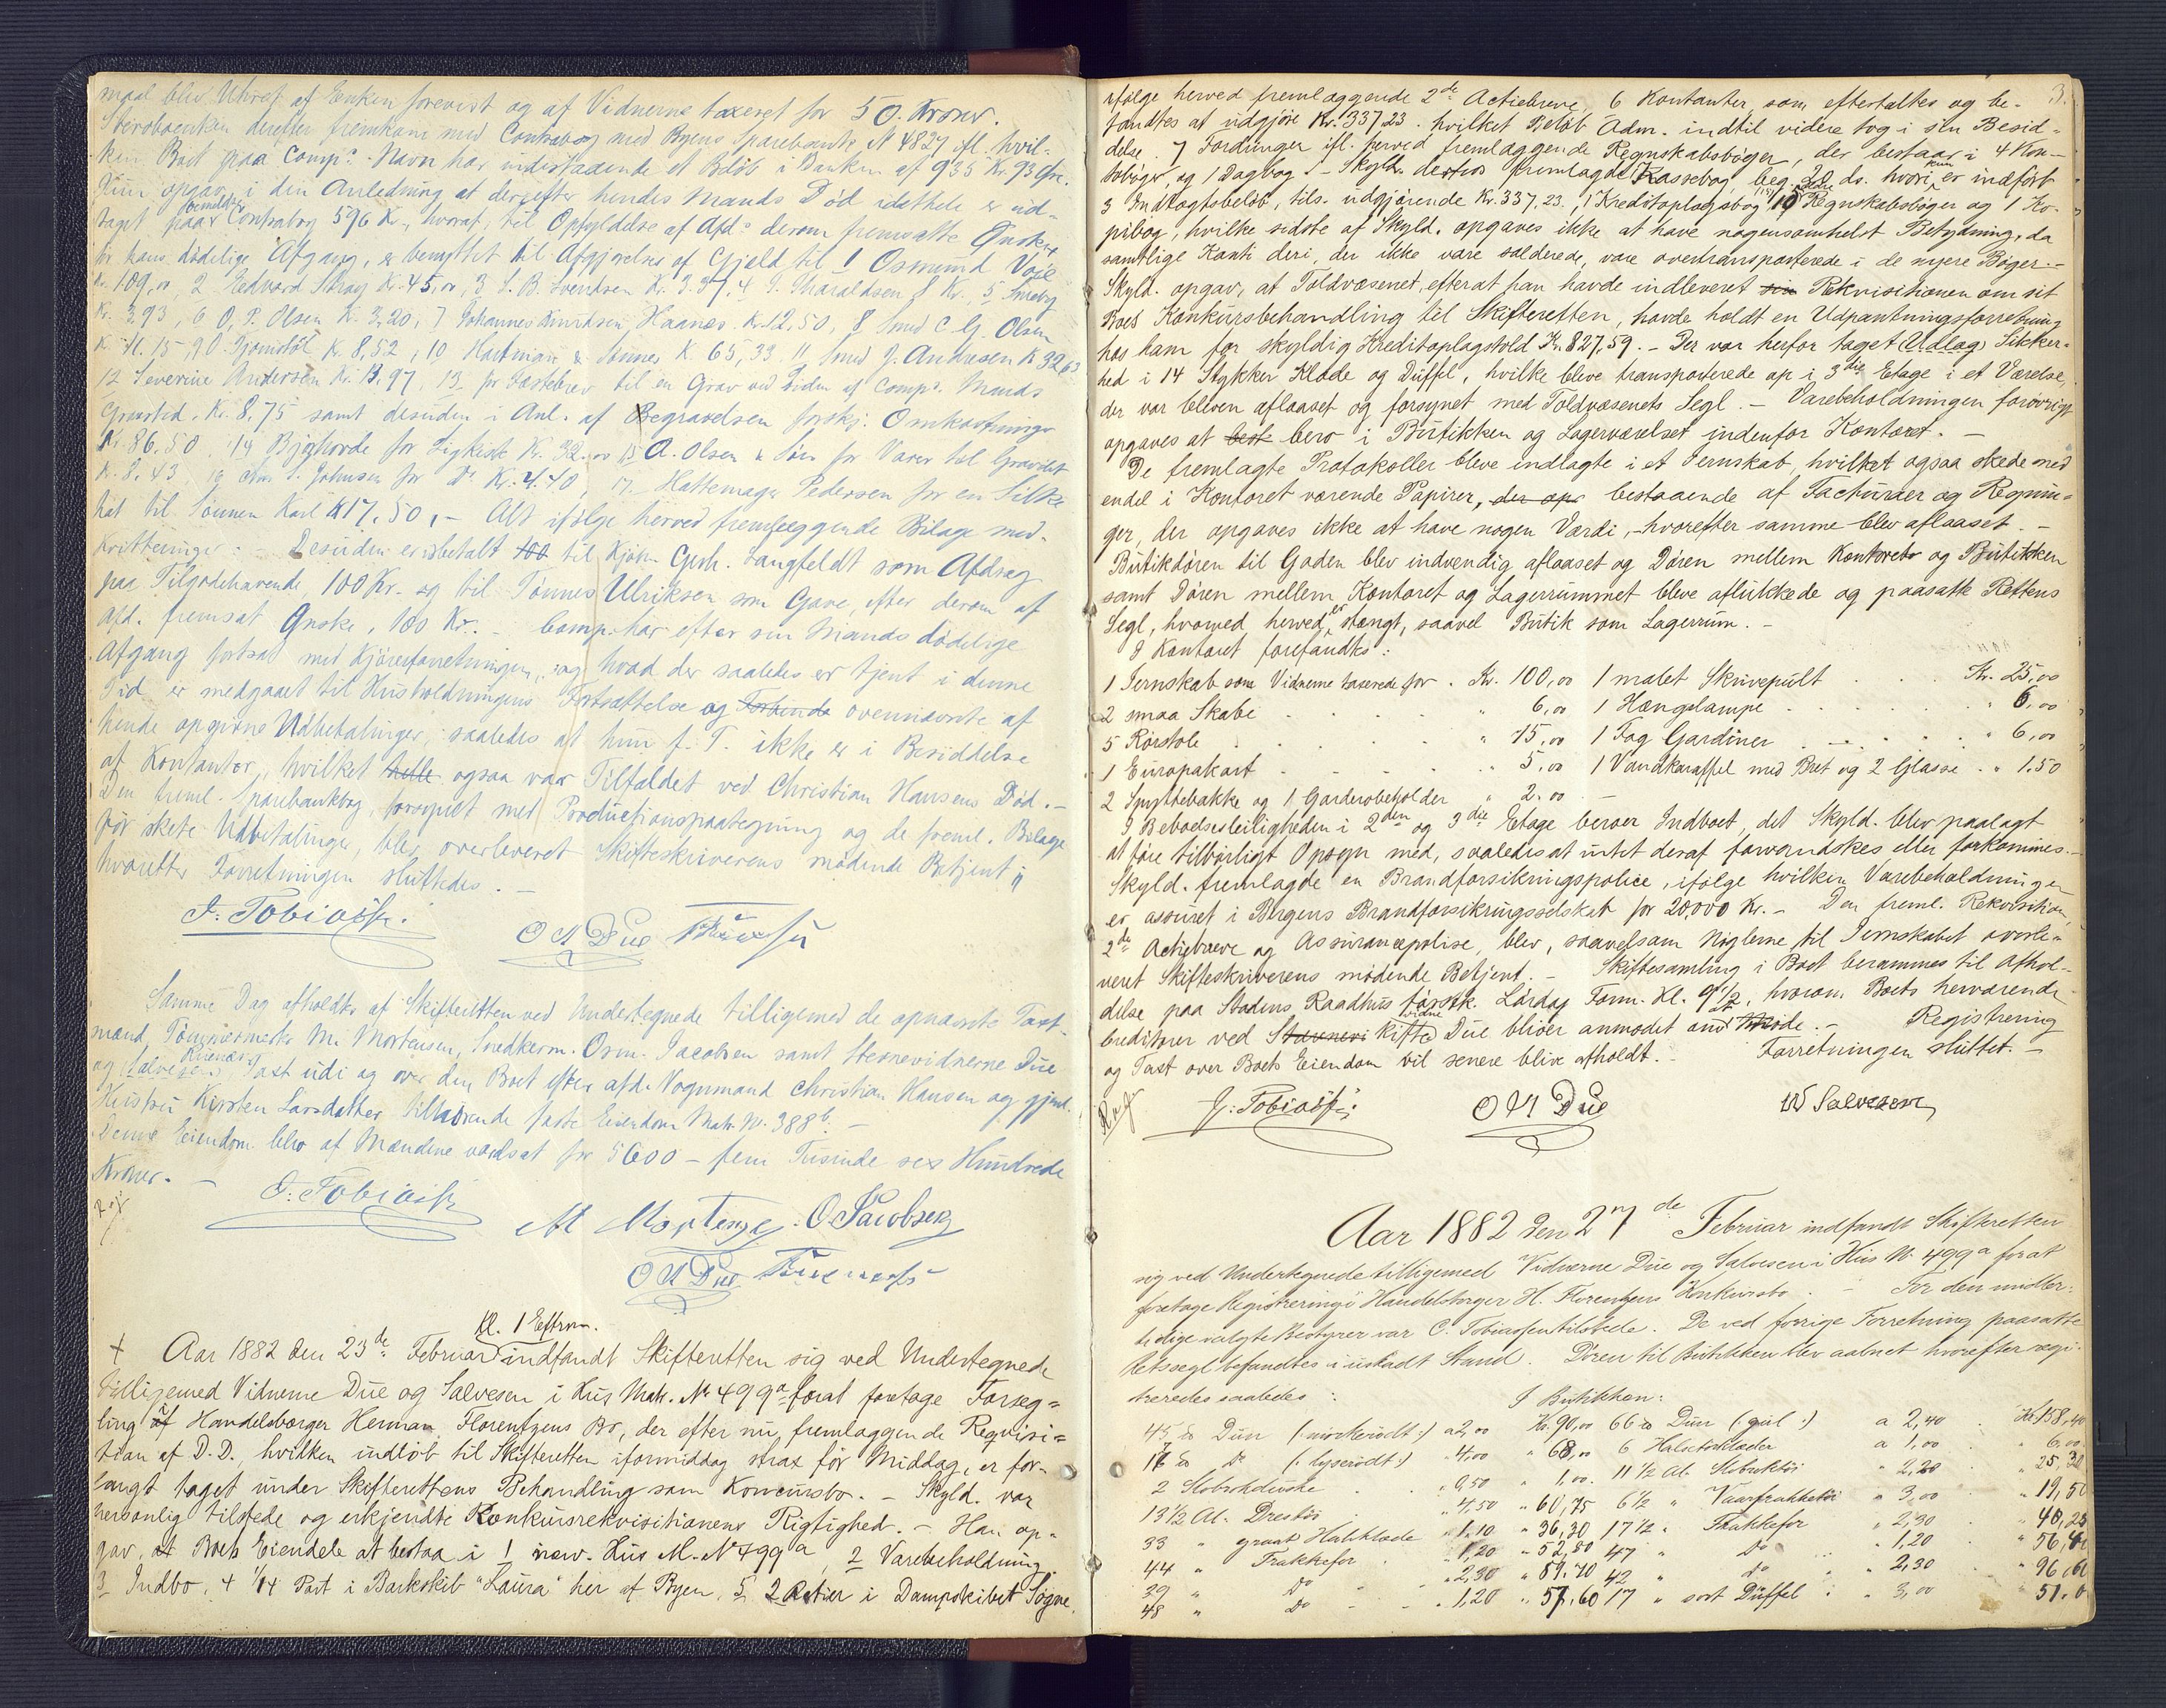 maal blev Uhret af Enken forevist og af Vidnerne taxeret for 50 Kroner.
Stervboenken derefter fremkom med Contrabog med Byens Sparebank N 4827 ifl. hvil-
ken Boet paa Comp. Navn har indestaaende et Beløb i Banken af 935 Kr. 93 Øre.
Hun opgav i den Anledning at der efter hendes Mands Død idethele er ud-
taget paa bemeldte Contrabog 596 K, hvoraf, til Opfyldelse af Afd. derom fremsatte Ønske
før hans dødelige Afgang, er benyttet til Afgjørelse af Gjeld til 1 Osmund Voie
Kr. 109,00, 2 Edvard Stray Kr. 45,00, 3 S. B. Svendsen Kr. 3.37, 4 J. Tharaldsen 8 Kr., 5
Kr. 3,93, 6 O. P. Olsen K. 3,20, 7 Johannes Knudsen, Haanes Kr. 12,50, 8 Smed C. G. Olsen
K. 11.15, 9 O. Gjomstøl K. 8,52, 10 Hartman & K. 65,33 11 Smed J. Andresen K 32,63
12 Severine Andersen Kr. 13.97, 13 for Fæstebrev til en Grav ved Siden af Comp. Mands
Gravsted, Kr. 8.75 samt desuden i Anl. af Begravelsen forskj. Omkostninger
Kr. 86.50, 14 Bjørhovde for Ligkiste Kr. 32.00 15 A. Olsen & Søn for Varer til Gravølet
K. 8.43 16 J. Johnsen for Do Kr. 4.40, 17. Hattemager Pedersen for en Silke
hat til Sønnen Karl K 17.50, – Alt ifølge herved fremlæggende Bilage med
Kvitteringer. – Desuden er udbetalt 100 til Kjøbm. Gerh. Langfeldt som Afdrag
paa Tilgodehavende, 100 Kr. og til Tønnes Ulriksen som Gave, efter derom af
Afd. fremsat Ønske, 100 Kr. – Comp. har efter sin Mands dødelige
Afgang fortsat med Kjøreforretningen, og hvad der saaledes er tjent i denne
Tid, er medgaaet til Husholdningens Fortsættelse og ovennævnte af
hende opgivne Udbetalinger, saaledes at hun f. T. ikke er i Besiddelse
af Kontanter, hvilket heller ogsaa var Tilfældet ved Christian Hansens Død. –
Den freml. Sparebankbog, forsynet med Productionspaategning og de freml. Bilage
for skete Udbetalinger, blev overleveret Skifteskriverens mødende Betjent
hvorefter Forretningen sluttedes. –
J. Tobiassen
O N Due
Samme Dag afholdtes af Skifteretten ved Undertegnede tilligemed de opnævnte Taxt-
mænd, Tømmermester M. Mortensen, Snedkerm. Osm. Jacobsen samt Stevnevidnerne Due
og Salvesen Taxt udi og over den Boet efter afd. Vognmand Christian Hansen og gjenl.
Hustru Kirsten Larsdatter tilhørende faste Eiendom Matr. No. 388b. –
Denne Eiendom blev af Mændene værdsat for 5600 – fem Tusinde sex Hundrede
Kroner. –
J. Tobiassen
M Mortensen. O. Jacobsen
O N Due
Kl. 1 Efterm.
+ Aar 1882 den 23de Februar indfandt Skifteretten sig ved Undertegnede
tilligemed Vidnerne Due og Salvesen i Hus Matr. No 499a forat foretage Forseg-
ling af Handelsborger Herman Florentzens Bo, der efter nu fremlæggende Reqvisi-
tion af D. D., hvilken indløb til Skifteretten iformiddag strax før Middag, er for-
langt taget under Skifterettens Behandling som Konkursbo. – Skyld. var
personlig tilstede og erkjendte Konkursrekvisitionens Rigtighed. – Han op-
gav, at Boets Eiendele at bestaa i 1 Hus M. No 499a, 2 Varebeholdning
3 Indbo, 4 1/14 Part i Barkskib "Laura" her af Byen, 5 2 Actier i Dampskibet Søgne,
3.
ifølge herved fremlæggende 2de Actiebreve, 6 Kontanter, som eftertaltes og be-
fandtes at udgjøre Kr. 337.23. hvilket Beløb Adm. indtil videre tog i sin Besid-
delse. 7 Fordringer ifl. herved fremlæggende Regnskabsbøger, der bestaar i 4 Kon-
tobøger, og 1 Dagbog. – Skyld. desuden fremlagde Kassebog, beg. 20 ds. hvori kun er indført
3 Indtægtsbeløb, tils. udgjørende Kr. 337.23., 1 Kreditoplagsbog, 10 ældre Regnskabsbøger og 1 Ko-
pibog, hvilke sidste af Skyld. opgaves ikke at have nogensomhelst Betydning, da
samtlige Konti deri, der ikke vare salderede, vare overtransporterede i de nyere Bøger. –
Skyld. opgav, at Toldvæsenet, efterat han havde indleveret sin Rekvisitionen om sit
Boes Konkursbehandling til Skifteretten, havde holdt en Udpantningsforretning
hos ham for skyldig Kreditoplagstold Kr. 827,59. – Der var herfor taget Udlæg Sikker-
hed i 14 Stykker Klæde og Düffel, hvilke bleve transporterede op i 3die Etage i et Værelse,
der var bleven aflaaset og forsynet med Toldvæsenets Segl. – Varebeholdningen forøvrigt
opgaves at best bero i Butikken og Lagerværelset indenfor Kontoret. –
De fremlagte Protokoller bleve indlagte i et Jernskab, hvilket ogsaa skede med
endel i Kontoret værende Papirer, der op bestaaende af Facturaer og Regnin-
ger, der opgaves ikke at have nogen Værdi, – hvorefter samme blev aflaaset. –
Butikdøren til Gaden blev indvendig aflaaset og Døren mellem Kontoret og Butikken
samt Døren mellem Kontoret og Lagerrummet bleve aflukkede og paasatte Rettens
Segl, hvorved herved er stængt, saavel Butik som Lagerrum. –
I Kontoret forefandtes:
1 Jernskab som Vidnerne taxerede for . Kr. 100,00 1 malet Skrivepult . . . Kr. 25,00
2 smaa Skabe . . . . " 6,00 1 Hængelampe . . . . " 6,00
5 Rørstole . . . . " 15,00 1 Fag Gardiner . . . . " 6,00
1 Europakart . . . . " 5,00 1 Vandkaraffel med Bret og 2 Glasse . " 1.50
2 Spyttebakke og 1 Garderobeholder " 2.00
I Beboelsesleiligheden i 2den og 3die Etage beroer Indboet, det Skyld. blev paalagt
at føre tilbørligt Opsyn med, saaledes at intet deraf forvandskes eller forkommes. –
Skyld. fremlagde en Brandforsikringspolice, ifølge hvilken Varebeholdningen
er assuret i Bergens Brandforsikringsselskab for 20,000 Kr. – Den freml. Rekvisition,
2de Actiebreve og Assurancepolise, blev, saavelsom Nøglerne til Jernskabet overle-
veret Skifteskriverens mødende Betjent. – Skiftesamling i Boet berammes til Afhol-
delse paa Stadens Raadhus førstk. Lørdag Form. Kl. 9 1/2, hvorom Boets herværende
Creditorer ved Stevnevi Skiftevidne Due bliver anmodet om at møde. – Registrering
og Taxt over Boets Eiendom vil senere blive afholdt. – Forretningen sluttet. –
J. Tobiassen
O N Due
W Salvesen
Aar 1882 den 27de Februar indfandt Skifteretten
sig ved Undertegnede tilligemed Vidnerne Due og Salvesen i Hus No 499a forat
foretage Registrering i Handelsborger H. Florentzens Konkursbo. – For den midler-
tidige valgte Bestyrer var C. Tobiassen tilstede. De ved forrige Forretning paasatte
Retssegl befandtes i uskadt Stand. Døren til Butikken blev aabnet hvorefter regi-
streredes saaledes:
I Butikken:
45 Dun (: mørkerødt :) a 2,00 Kr. 90,00 66 Dun (: gul :) a 2,40 Kr. 158,40
17 do (: lyserødt :) " 4,00 " 68,00 6 Halstørklæder a 1,00 " 6,00
2 " 0,50 " 1,00 11 1/2 Al. " 2,20 " 25,30
13 1/2 Al. Drestøi " 4,50 " 60,75 6 1/2 " Vaarfrakketøi " 3,00 " 19,50
33 " graat Halvklæde " 1.10 " 36,30 17 1/2 " Frakkefor " 2,30 " 40,25
44 " Frakkefor " 1,20 " 52,80 47 " do " 1,20 " 56,40
39 " Do " 2,30 " 89,70 42 " do " 2,30 " 96,60
48 " Do " 1,20 " 57,60 17 " sort Düffel " 3,00 " 51.0